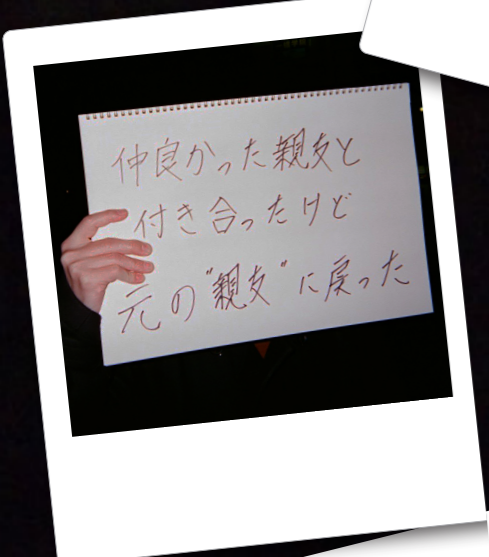 仲良かった親友と
付き合ったけど
元の"親友"に戻った